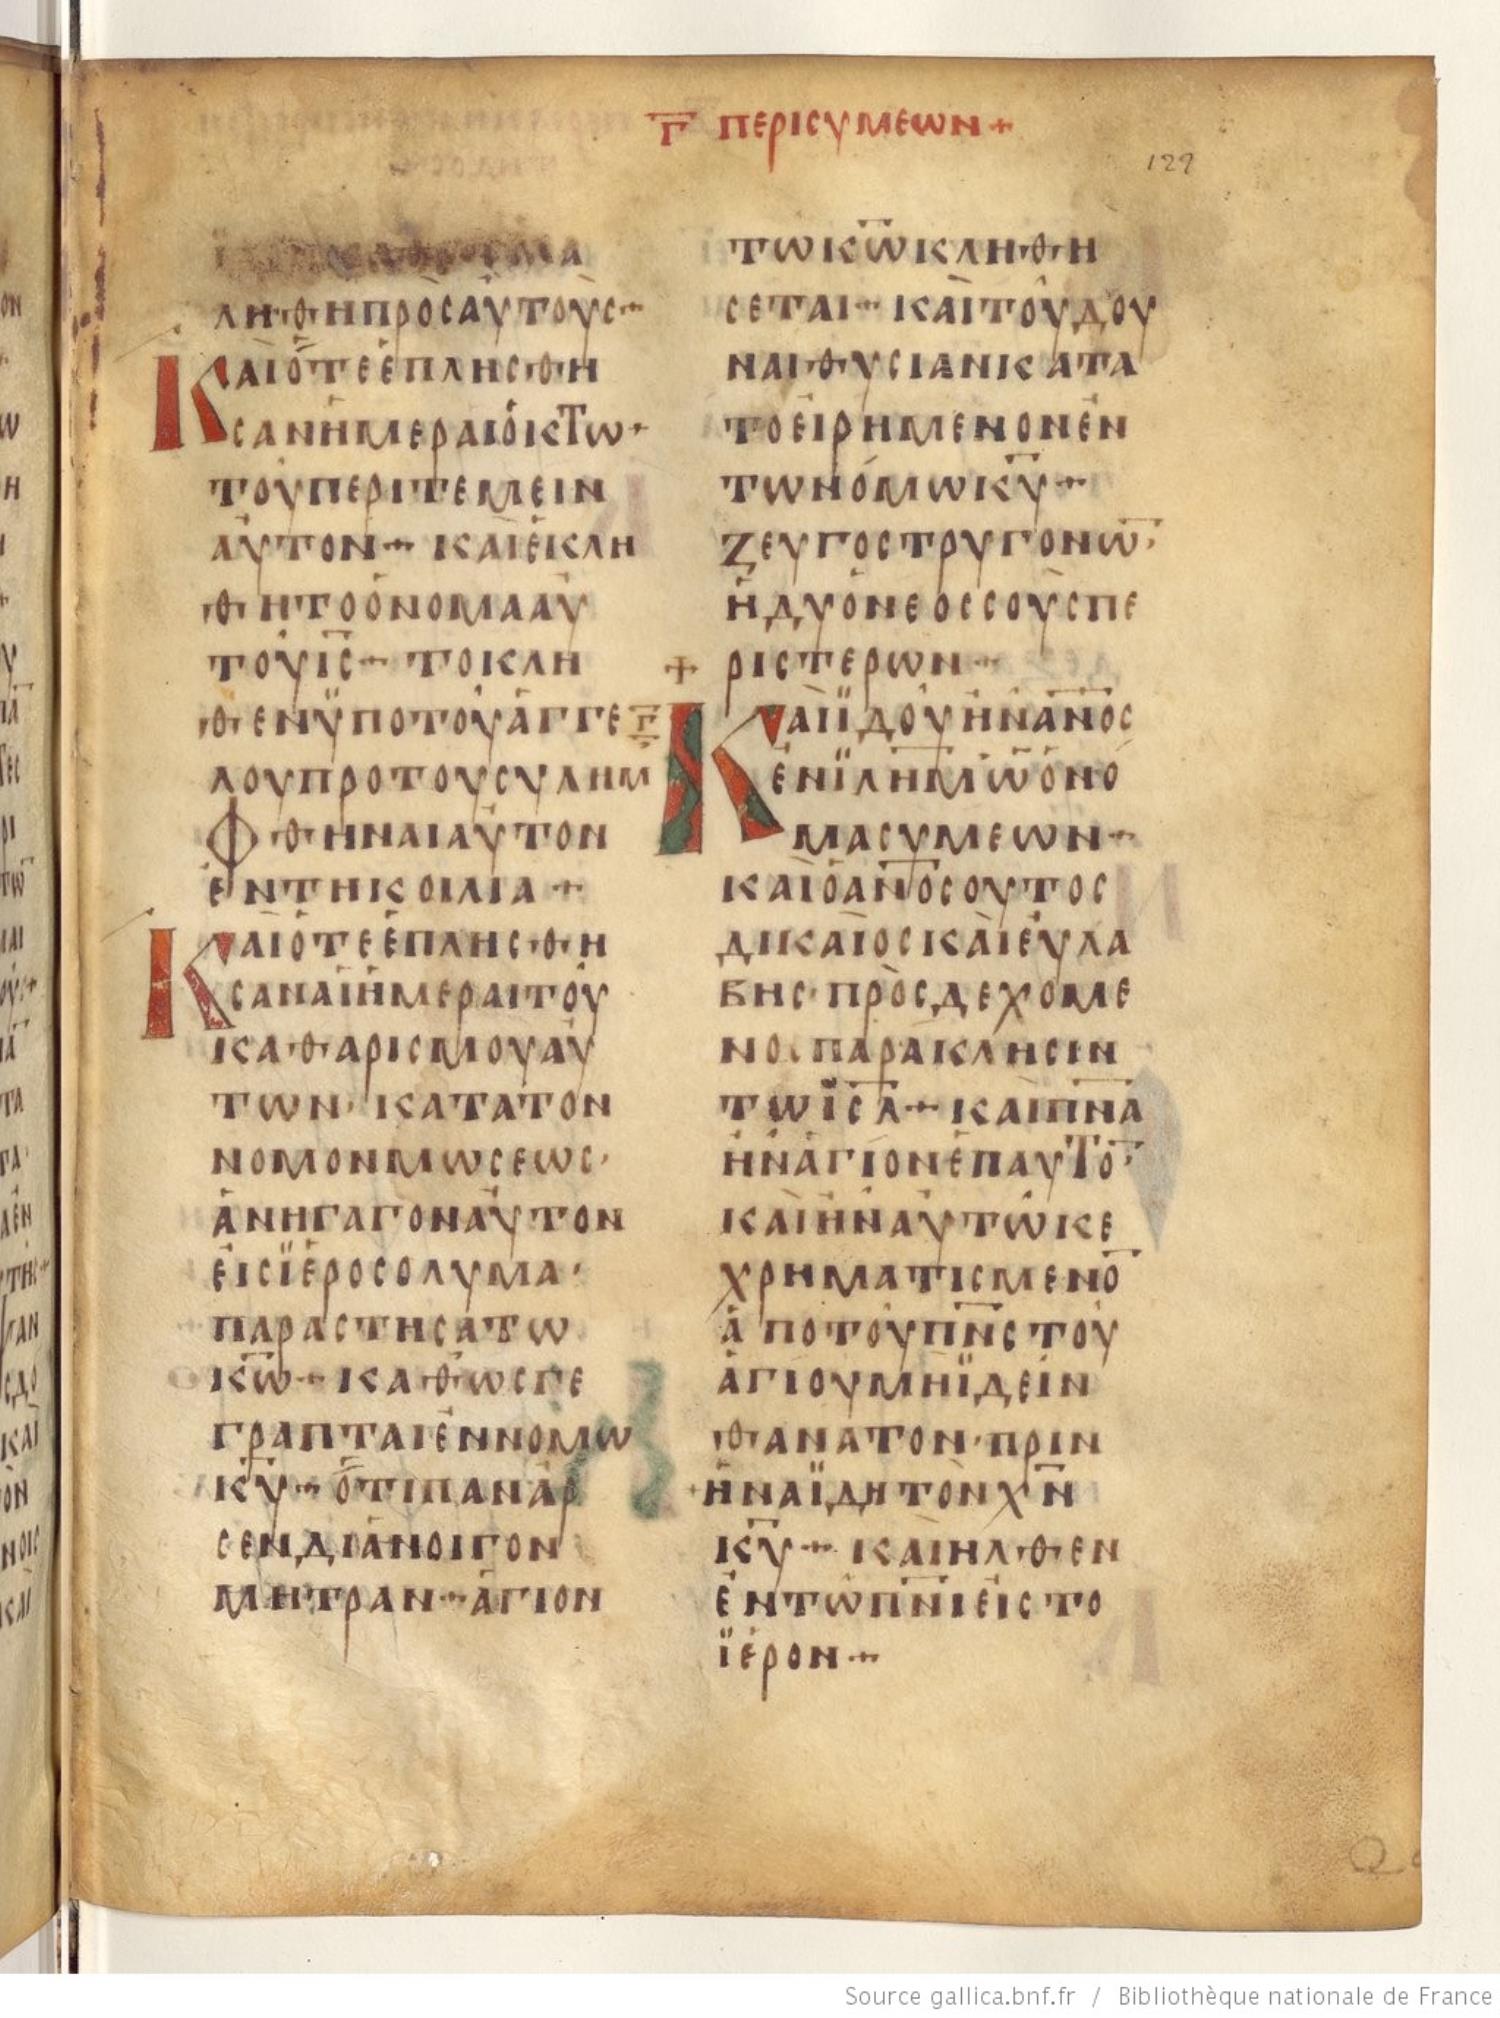 Γ̅ ΠΕΡΙ ΣΥΜΕΩΝ +
129
ΛΗΘΗ ΠΡΟΣ ΑΥΤΟΥΣ +
ΚΑΙ ΟΤΕ ΕΠΛΗΣΘΗ
ΣΑΝ ΗΜΕΡΑΙ ΟΚΤΩ +
ΤΟΥ ΠΕΡΙΤΕΜΕΙΝ
ΑΥΤΟΝ + ΚΑΙ ΕΚΛΗ
ΘΗ ΤΟ ΟΝΟΜΑ ΑΥ
ΤΟΥ Ι̅Σ̅ + ΤΟ ΚΛΗ
ΘΕΝ ΫΠΟ ΤΟΥ ΑΓΓΕ
ΛΟΥ ΠΡΟ ΤΟΥ ΣΥΛΗΜ
ΦΘΗΝΑΙ ΑΥΤΟΝ
ΕΝ ΤΗ ΚΟΙΛΙΑ +
ΚΑΙ ΟΤΕ ΕΠΛΗΣΘΗ
ΣΑΝ ΑΙ ΗΜΕΡΑΙ ΤΟΥ
ΚΑΘΑΡΙΣΜΟΥ ΑΥ
ΤΩΝ · ΚΑΤΑ ΤΟΝ
ΝΟΜΟΝ ΜΩΣΕΩΣ ·
ΑΝΗΓΑΓΟΝ ΑΥΤΟΝ
ΕΙΣ ΪΕΡΟΣΟΛΥΜΑ ·
ΠΑΡΑΣΤΗΣΑΙ ΤΩ
Κ̅Ω̅ + ΚΑΘΩΣ ΓΕ
ΓΡΑΠΤΑΙ ΕΝ ΝΟΜΩ
Κ̅Υ̅ + ΟΤΙ ΠΑΝ ΑΡ
ΣΕΝ ΔΙΑΝΟΙΓΟΝ
ΜΗΤΡΑΝ + ΑΓΙΟΝ
ΤΩ Κ̅Ω̅ ΚΛΗΘΗ
ΣΕΤΑΙ + ΚΑΙ ΤΟΥ ΔΟΥ
ΝΑΙ ΘΥΣΙΑΝ ΚΑΤΑ
ΤΟ ΕΙΡΗΜΕΝΟΝ ΕΝ
ΤΩ ΝΟΜΩ Κ̅Υ̅ +
ΖΕΥΓΟΣ ΤΡΥΓΟΝΩ̅ ·
Η ΔΥΟ ΝΕΟΣΣΟΥΣ ΠΕ
+ ΡΙΣΤΕΡΩΝ +
Γ̅ ΚΑΙ ΪΔΟΥ ΗΝ Α̅Ν̅Ο̅Σ̅
ΕΝ Ϊ̅Λ̅Η̅Μ̅ Ω ΟΝΟ
ΜΑ ΣΥΜΕΩΝ +
ΚΑΙ Ο Α̅Ν̅Ο̅Σ̅ ΟΥΤΟΣ
ΔΙΚΑΙΟΣ ΚΑΙ ΕΥΛΑ
ΒΗΣ · ΠΡΟΣΔΕΧΟΜΕ
ΝΟΣ ΠΑΡΑΚΛΗΣΙΝ
ΤΩ Ϊ̅Σ̅Λ̅ + ΚΑΙ Π̅Ν̅Α̅
ΗΝ ΑΓΙΟΝ ΕΠ ΑΥΤΟ̅ ·
ΚΑΙ ΗΝ ΑΥΤΩ ΚΕ
ΧΡΗΜΑΤΙΣΜΕΝΟ̅
ΑΠΟ ΤΟΥ Π̅Ν̅Σ̅ ΤΟΥ
ΑΓΙΟΥ ΜΗ ΪΔΕΙΝ
ΘΑΝΑΤΟΝ · ΠΡΙΝ
Η ΝΑ ΪΔΗ ΤΟΝ Χ̅Ν̅
Κ̅Υ̅ + ΚΑΙ ΗΛΘΕΝ
ΕΝ ΤΩ Π̅Ν̅Ι̅ ΕΙΣ ΤΟ
ΪΕΡΟΝ +
Source gallica.bnf.fr / Bibliothèque nationale de France